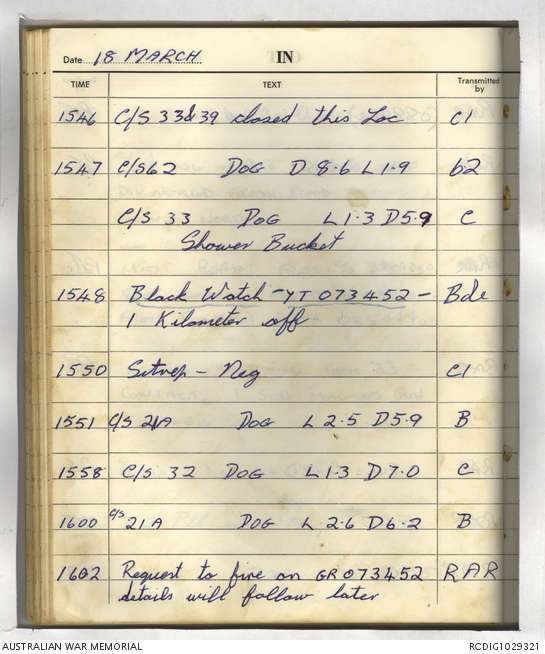 Date 18 MARCH IN
TIME TEXT Transmitted by
1546 C/S 33 & 39 closed this Loc C1
1547 C/S 62 DOG D 8.6 L 1.9 62
C/S 33 DOG L 1.3 D 5.9 C
Shower Bucket
1548 Black Watch - YT 073452 - Bde
1 Kilometer off
1550 Sitrep - Neg C1
1551 C/S 21A DOG L 2.5 D 5.9 B
1558 C/S 32 DOG L 1.3 D 7.0 C
1600 C/S 21A DOG L 2.6 D 6.2 B
1602 Request to fire on GR 073452 RAR
details will follow later
AUSTRALIAN WAR MEMORIAL RCDIG1029321